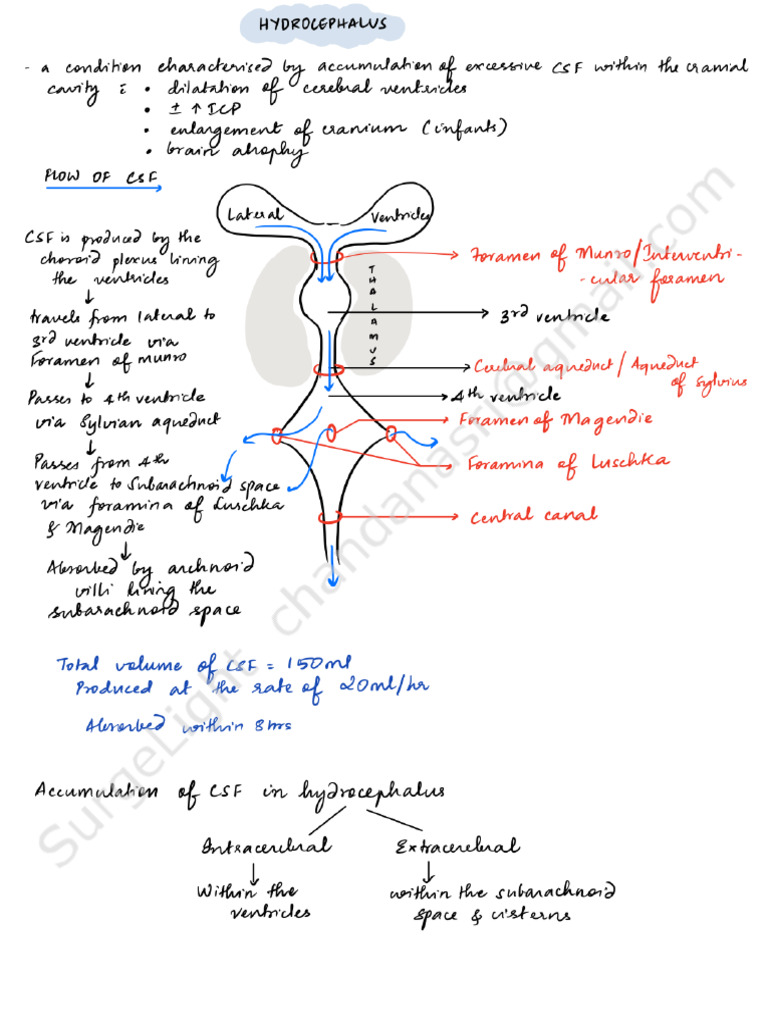 HYDROCEPHALUS
- a condition characterised by accumulation of excessive CSF within the cranial
cavity : • dilatation of cerebral ventricles
• ± ↑ ICP
• enlargement of cranium (infants)
• brain atrophy
FLOW OF CSF
CSF is produced by the
choroid plexus lining
the ventricles
↓
travels from lateral to
3rd ventricle via
Foramen of munro
↓
Passes to 4th ventricle
via Sylvian aqueduct
↓
Passes from 4th
ventricle to Subarachnoid space
via foramina of Luschka
& Magendie
↓
Absorbed by archnoid
villi lining the
subarachnoid space
Lateral Ventricles
THALAMUS
Foramen of Munro/Interventri-
-cular foramen
3rd ventricle
Cerebral aqueduct / Aqueduct
of Sylvius
4th ventricle
Foramen of Magendie
Foramina of Luschka
Central canal
Total volume of CSF = 150ml
Produced at the rate of 20ml/hr
Absorbed within 8hrs
Accumulation of CSF in hydrocephalus
Intracerebral Extracerebral
↓ ↓
Within the within the subarachnoid
ventricles space & cisterns
SurgeLight chandanasri@gmail.com